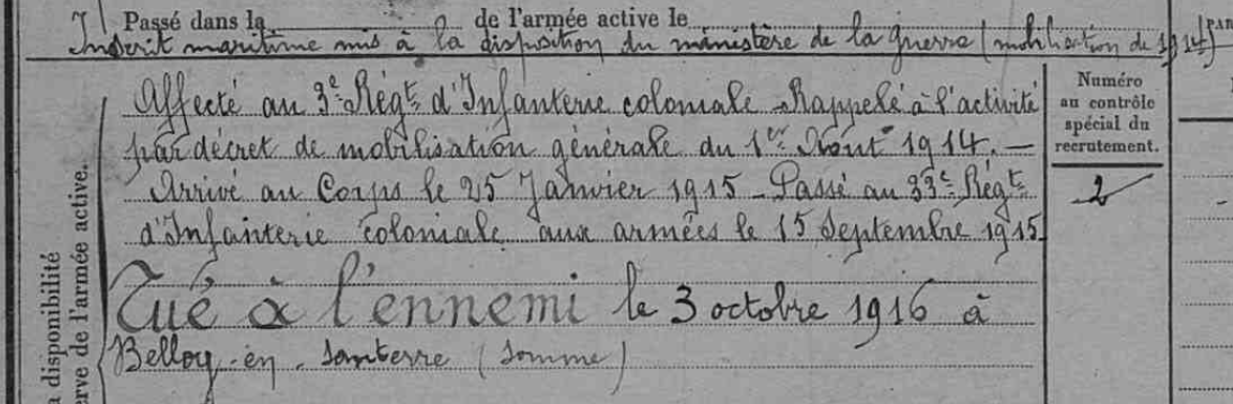 Passé dans la de l'armée active le
Inscrit maritime mis à la disposition du ministère de la Guerre (mobilisation de 1914)
PAR
Numéro
au contrôle
spécial du
recrutement.
Affecté au 3e Régt d'Infanterie coloniale - Rappelé à l'activité
par décret de mobilisation générale du 1er Août 1914. -
Arrivé au Corps le 25 Janvier 1915 - Passé au 33e Régt
d'Infanterie coloniale aux armées le 15 Septembre 1915
Tué à l'ennemi le 3 octobre 1916 à
Belloy-en-Santerre (Somme)
2
disponibilité
de l'armée active.